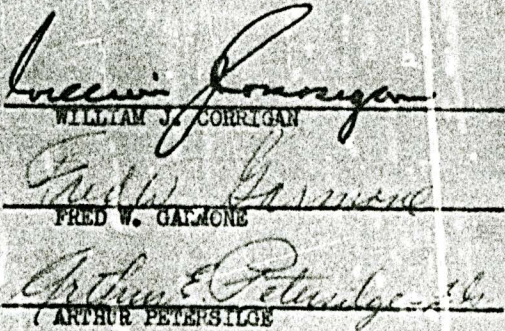 William J Corrigan
WILLIAM J. CORRIGAN
Fred W Garmone
FRED W. GARMONE
Arthur E. Petersilge
ARTHUR PETERSILGE